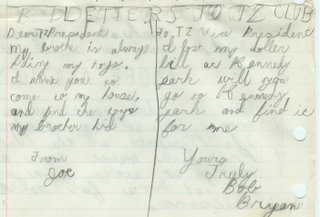 LETTERS TO TZ CLUB
Dear TZ President
My is alwys
hiding my toys,
I you to
come to my house,
and find toys
my hid
From
Joe
To, TZ Vice President
I lost my doller
bill at Kennedy
park will you
go to Kennedy
park and find it
for me
Yours
Truly
Bob
Bryan